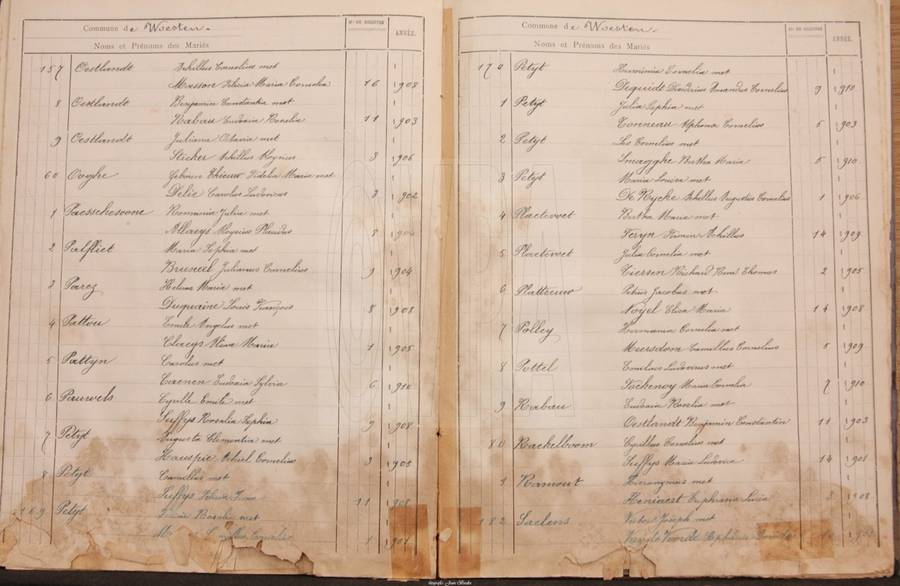 Commune de Woesten.
Noms et Prénoms des Mariés
Nos DE REGISTRE
ANNÉE.
157 Oestlandt Achillus Cornelius met
Masson Silvia Maria Cornelia 16 1908
8 Oestlandt Benjamin Constantin met
Rabau Eudoxia Rosalia 11 1903
9 Oestlandt Juliana Octavia met
Sticker Achillus Aloysius 3 1906
60 Ooghe Thieuw Fidelia Maria met
Delie Carolus Ludovicus 3 1902
1 Paesschesoone Romania Julia met
Allaeys Aloysius Plaudus 8 1904
2 Palfliet Maria Sophia met
Bruneel Julianus Cornelius 9 1904
3 Parez Helena Maria met
Duquaine Louis François 8 1908
4 Pattou Emile Angelus met
Claeys Maria 1 1905
5 Pattyn Carolus met
Caenen Eudoxia Sylvia 6 1910
6 Pauwels Cyrille Emile met
Suffys Rosalia Sophia 9 1908
7 Petyt Augusta Clementia met
Hauspie Achiel Cornelius 3 1905
8 Petyt Camillus met
Suffys 11 1908
169 Petyt Rosalie met
Cornelius 1 1901
Commune de Woesten.
Noms et Prénoms des Mariés
Nos DE REGISTRE
ANNÉE.
170 Petyt Cornelia met
Dequidt Amandus Cornelius 9 1910
1 Petyt Julia Sophia met
Tonneau Alphons Cornelius 5 1903
2 Petyt Leo Cornelius met
Smagghe Bertha Maria 5 1910
3 Petyt Maria Louisa met
De Rycke Achillus Augustus Cornelius 1 1906
4 Plaetevoet Bertha Maria met
Feryn Firmin Achillus 14 1909
5 Plaetevoet Julia Cornelia met
Tiersen Richard Remi Thomas 2 1905
6 Platteeuw Petrus Jacobus met
Noyel Elisa Maria 14 1908
7 Polley Hermania Cornelia met
Meersdom Camillus Cornelius 5 1909
8 Pottel Emilius Ludovicus met
Vochenoy Maria Cornelia 7 1910
9 Rabau Eudoxia Rosalia met
Oestlandt Benjamin Constantin 11 1903
80 Rackelboom Cyrillus Cornelius met
Suffys Maria Ludovica 14 1901
1 Ramout Hieronymus met
Heniaert Euphrasia Lucia 3 1908
182 Saelens Victor Joseph met
Van de Voorde